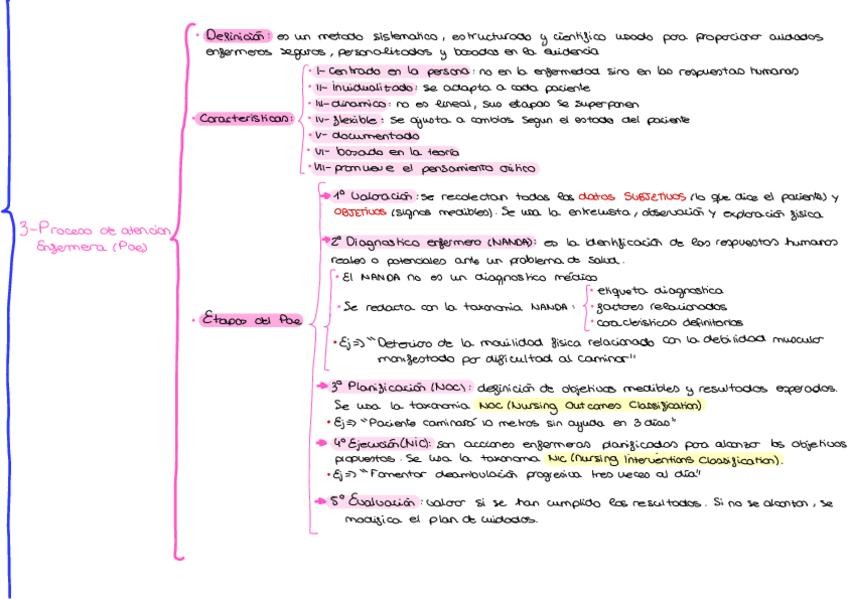 • Definición: es un metodo sistematico, estructurado y científico usado para proporcionar cuidados
enfermeros seguros, personalizados y basados en la evidencia
• Caracteristicas:
• I- Centrado en la persona: no en la enfermedad sino en las respuestas humanas
• II- individualizado: se adapta a cada paciente
• III- dinamico: no es lineal, sus etapas se superponen
• IV- flexible: se ajusta a cambios segun el estado del paciente
• V- documentado
• VI- basado en la teoría
• VII- promueve el pensamiento crítico
3-Proceso de atencion
Enfermera (Pae)
• Etapas del Pae
1º Valoración: se recolectan todos los datos SUBJETIVOS (lo que dice el paciente) y
OBJETIVOS (signos medibles). Se usa la entrevista, observación y exploración física
2º Diagnostico enfermero (NANDA): es la identificación de las respuestas humanas
reales o potenciales ante un problema de salud.
• El NANDA no es un diagnostico médico
• Se redacta con la taxonomia NANDA:
• etiqueta diagnostica
• factores relacionados
• caracteristicas definitorias
• Ej=> "Deterioro de la movilidad física relacionado con la debilidad muscular
manifestado por dificultad al caminar"
3º Planificación (NOC): definición de objetivos medibles y resultados esperados.
Se usa la taxonomia NOC (Nursing Outcomes Classification)
• Ej=> "Paciente caminará 10 metros sin ayuda en 3 días"
4º Ejecución (NIC): son acciones enfermeras planificadas para alcanzar los objetivos
propuestos. Se usa la taxonoma NIC (Nursing Interventions Classification).
• Ej=> "Fomentar deambulación progresiva tres veces al día"
5º Evaluación: valorar si se han cumplido los resultados. Si no se alcanzan, se
modifica el plan de cuidados.